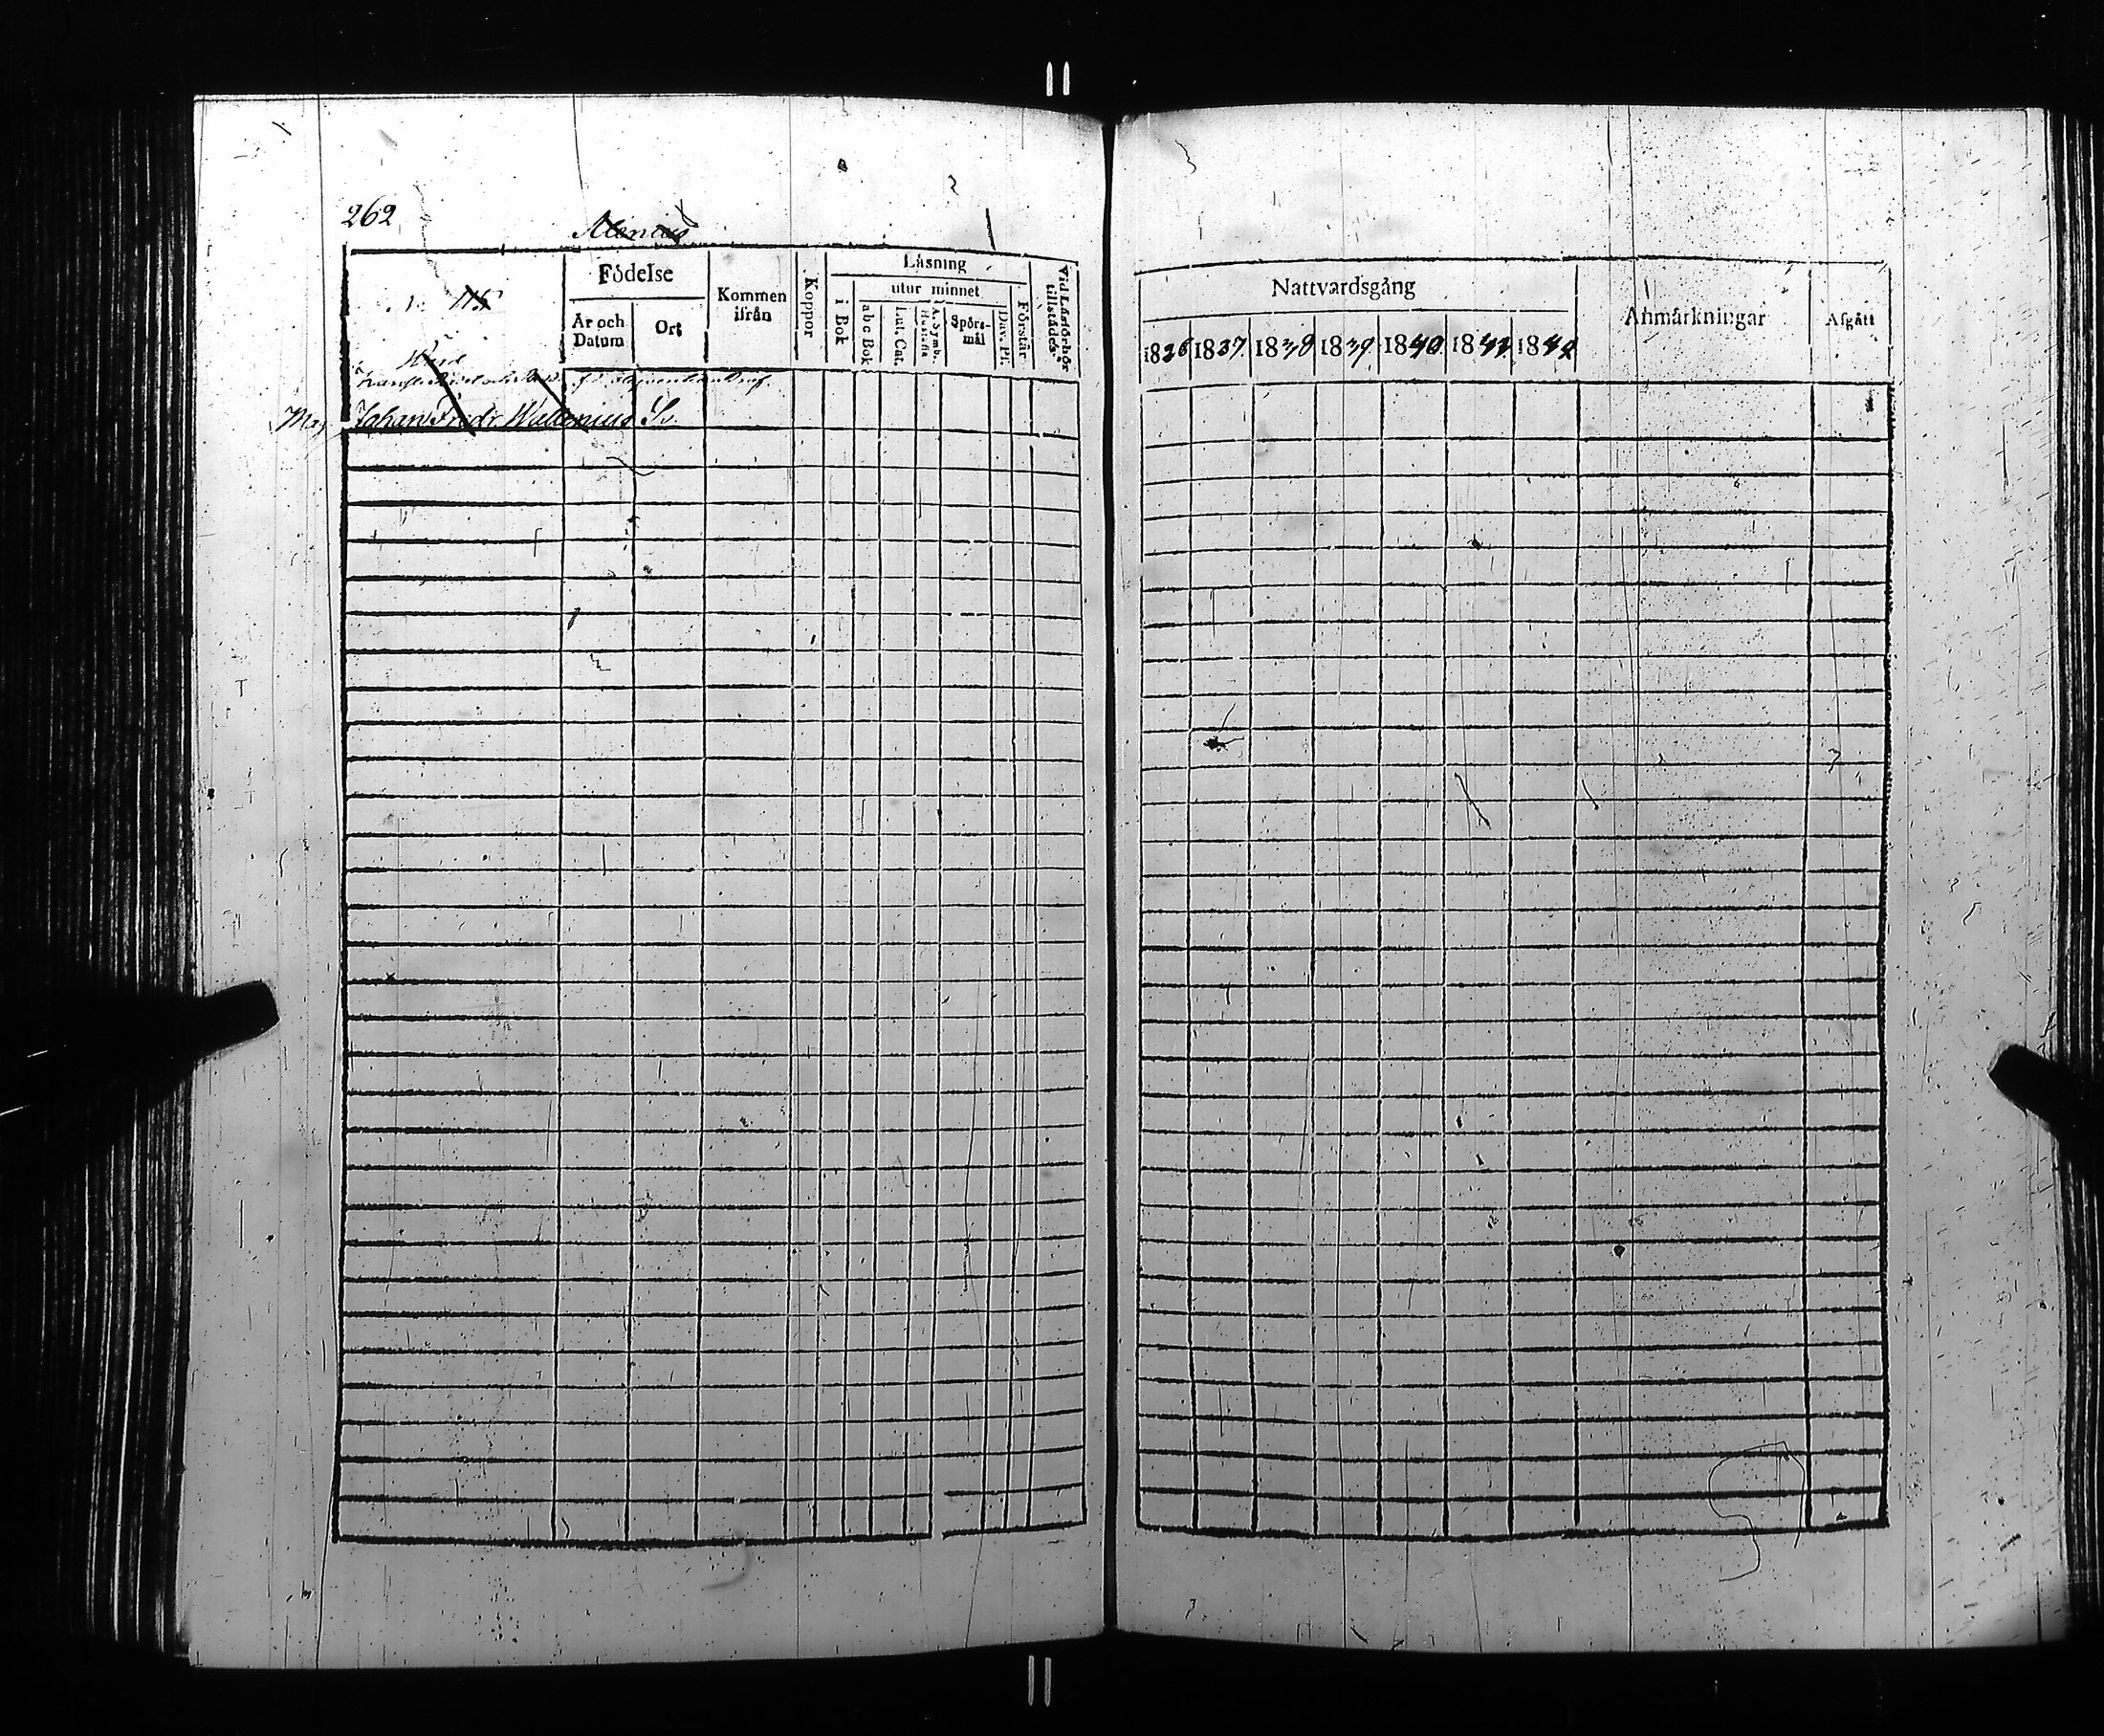 262
Födelse
År och Datum
Ort
Kommen ifrån
Koppor
Läsning
i Bok
utur minnet
abc Bok
Lut. Cat.
A. Symb. Hustafla
Spörsmål
Dav. Ps.
Förstår
Vid Läsförhör tillstädes
Nattvardsgång
1836 1837 1838 1839 1840 1841 1842
Anmärkningar
Afgått
115
Mag. Johan Fredr. Wallenius Sv.